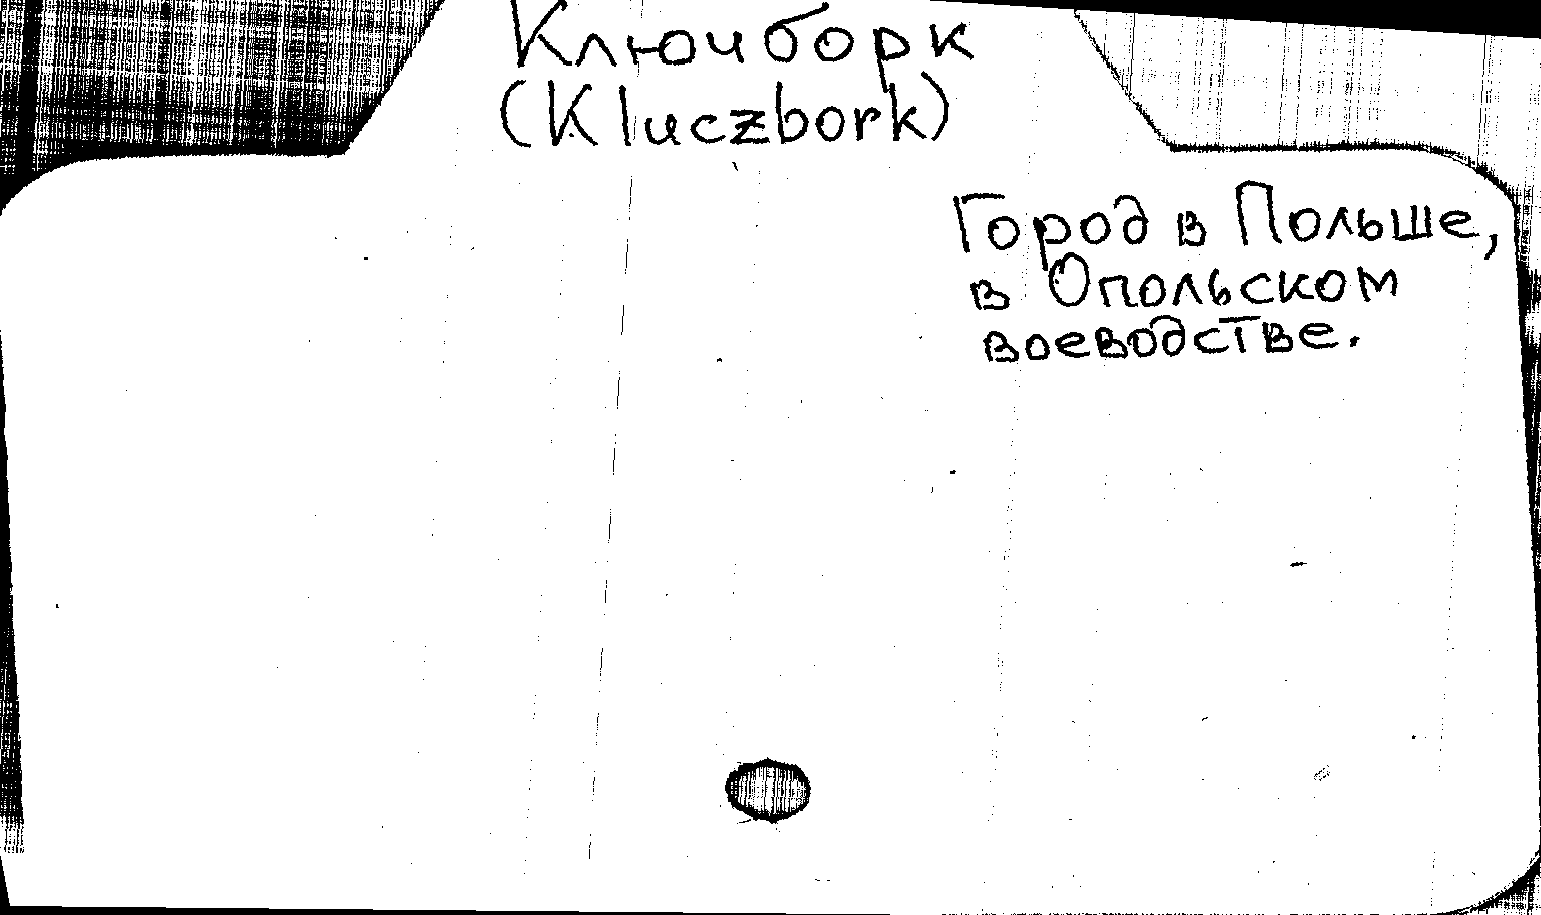 Ключборк
(Kluczbork)
Город в Польше,
в Опольском
воеводстве.